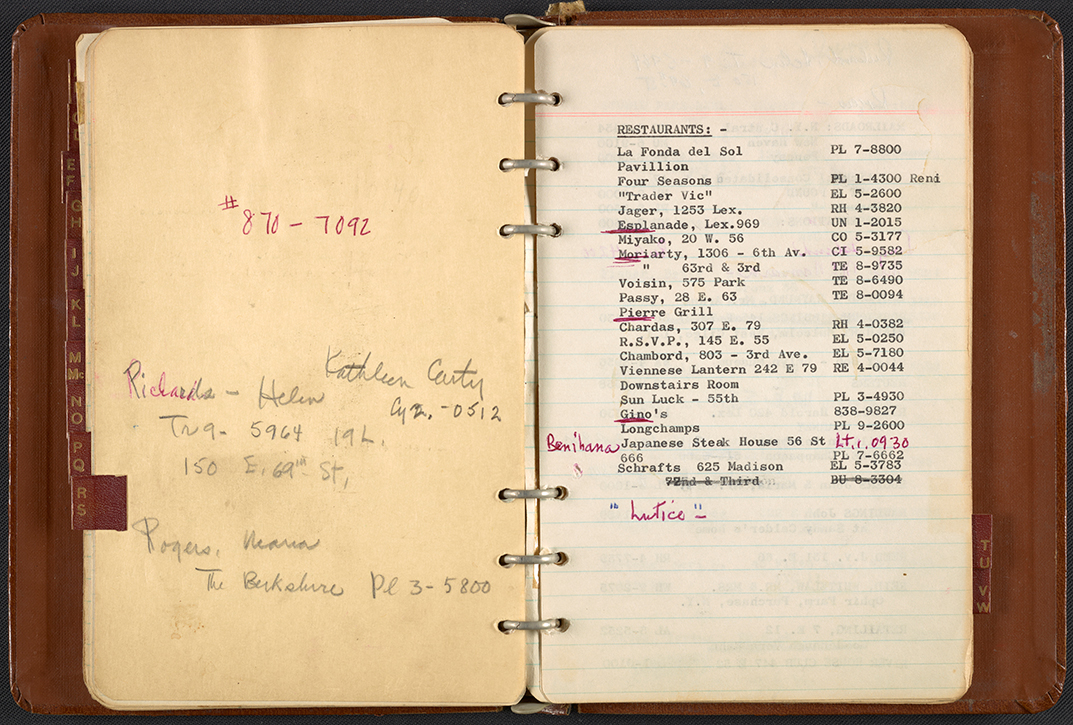 E
F
G
H
I
J
K
L
M
Mc
N
O
P
Q
R
S
# 870 - 7092
Kathleen Carty
Richards - Helen
Cy 2, - 0512
Tr 9 - 5964 19L.
150 E. 69th St,
Rogers, Maria
The Berkshire Pl 3 - 5800
RESTAURANTS: -
La Fonda del Sol PL 7-8800
Pavillion
Four Seasons PL 1-4300 Reni
"Trader Vic" EL 5-2600
Jager, 1253 Lex. RH 4-3820
Esplanade, Lex.969 UN 1-2015
Miyako, 20 W. 56 CO 5-3177
Moriarty, 1306 - 6th Av. CI 5-9582
" 63rd & 3rd TE 8-9735
Voisin, 575 Park TE 8-6490
Passy, 28 E. 63 TE 8-0094
Pierre Grill
Chardas, 307 E. 79 RH 4-0382
R.S.V.P., 145 E. 55 EL 5-0250
Chambord, 803 - 3rd Ave. EL 5-7180
Viennese Lantern 242 E 79 RE 4-0044
Downstairs Room
Sun Luck - 55th PL 3-4930
Gino's 838-9827
Longchamps PL 9-2600
Benihana Japanese Steak House 56 St Lt. 1. 0930
666 PL 7-6662
Schrafts 625 Madison EL 5-3783
72nd & Third BU 8-3304
"Lutice"
T
U
VW